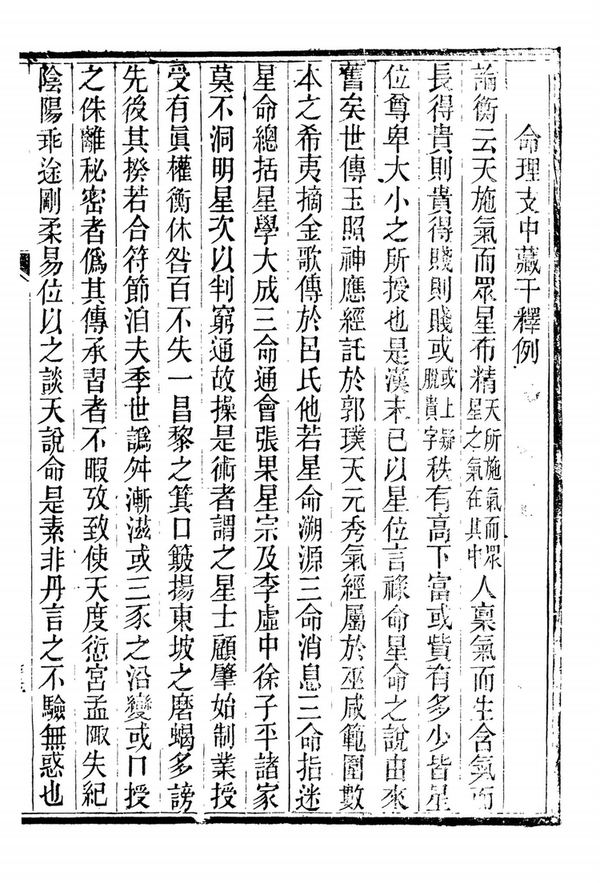 命理支中藏干釋例
論衡云天施氣而眾星布精天所施氣而眾星之氣在其中人稟氣而生含氣而
長得貴則貴得賤則賤或或上疑脫貴字秩有高下富或貲有多少皆星
位尊卑大小之所授也是漢末已以星位言祿命星命之說由來
舊矣世傳玉照神應經託於郭璞天元秀氣經屬於巫咸範圍數
本之希夷摘金歌傳於呂氏他若星命溯源三命消息三命指迷
星命總括星學大成三命通會張果星宗及李虛中徐子平諸家
莫不洞明星次以判窮通故操是術者謂之星士顧肇始制業授
受有真權衡休咎百不失一昌黎之箕口簸揚東坡之磨蝎多謗
先後其揆若合符節洎夫季世譌舛漸滋或三豕之沿變或口授
之侏離秘密者僞其傳承習者不暇攷致使天度愆宮孟陬失紀
陰陽乖途剛柔易位以之談天說命是素非丹言之不驗無惑也